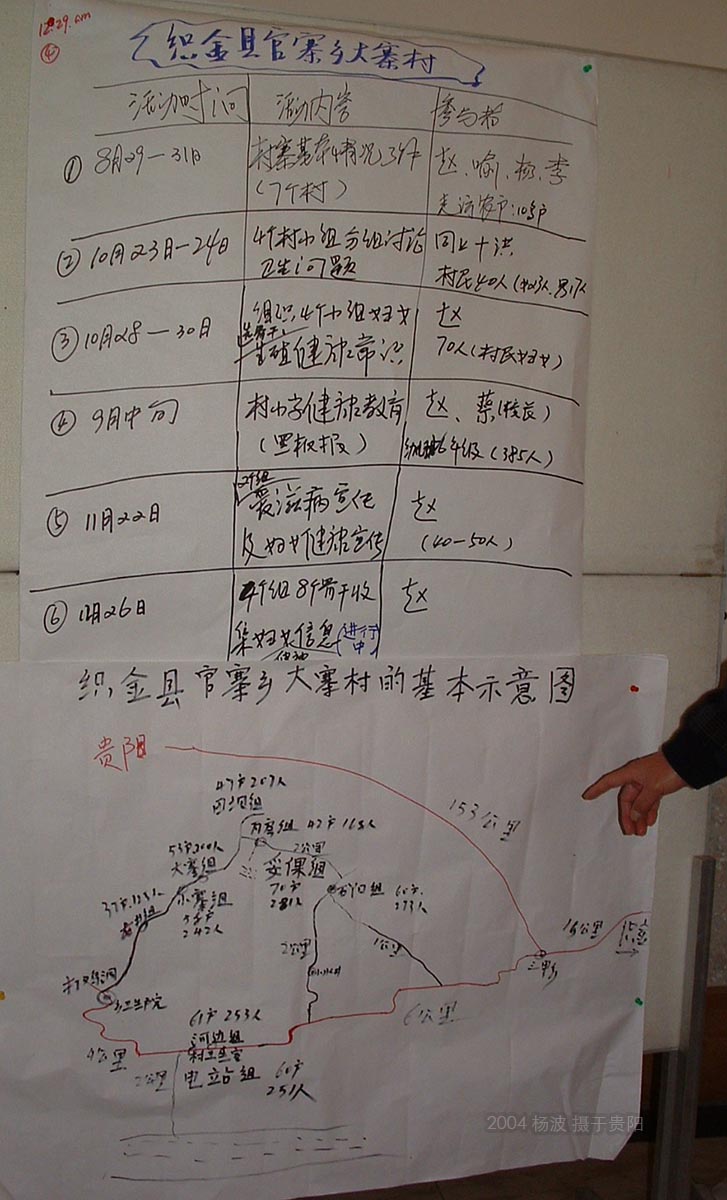 12:29.am
④
织金县官寨乡大寨村
活动时间 活动内容 参与者
① 8月29—31日 村寨基本情况 赵、喻、杨、李
(7个村) 走访农户:10多户
② 10月23日—24日 4个村小组分组讨论 同上十洪
卫生问题 村民40人
③ 10月28—30日 组织4个小组妇女 赵
生殖健康常识 70人(村民妇女)
④ 9月中旬 村小学健康教育 赵、蔡(校长)
(黑板报) 年级(385人)
⑤ 11月22日 艾滋病宣传 赵
及妇女健康宣传 (40—50人)
⑥ 12月26日 4个组8个骨干收 赵
集妇女信息 (进行中)
织金县官寨乡大寨村的基本示意图
贵阳
153公里
47户209人
内寨组 42户168人
2公里
大寨组
小寨组
242人
妥倮组
70户
281人
石阳组 60户
273人
2公里
1公里
16公里
三甲乡
打鸡洞
乡卫生院
6公里
61户253人
河边组
村卫生室
电站组 60户
251人
4公里
2公里
2004 杨波 摄于贵阳